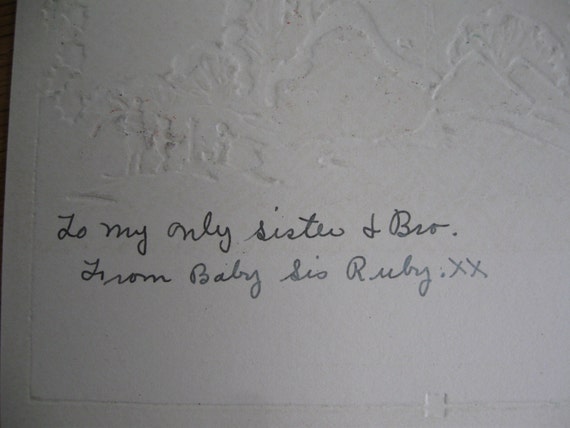 To my only sister & Bro.
From Baby Sis Ruby. XX